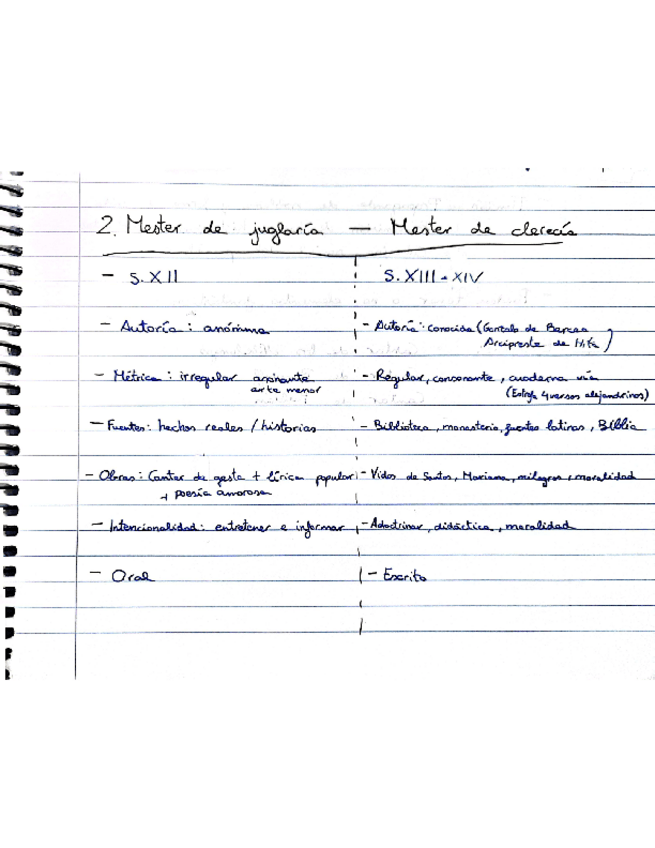 2. Mester de juglaría — Mester de clerecía
- S. XII
S. XIII - XIV
- Autoría: anónima
- Autoría: conocida (Gonzalo de Berceo
Arcipreste de Hita)
- Métrica: irregular asonante
arte menor
- Regular, consonante, cuaderna vía
(Estrofa 4 versos alejandrinos)
- Fuentes: hechos reales / historias
- Biblioteca, monasterio, fuentes latinas, Biblia
- Obras: Cantar de gesta + lírica popular
+ poesía amorosa
- Vidas de Santos, Mariana, milagros, moralidad
- Intencionalidad: entretener e informar
- Adoctrinar, didáctica, moralidad
- Oral
- Escrito